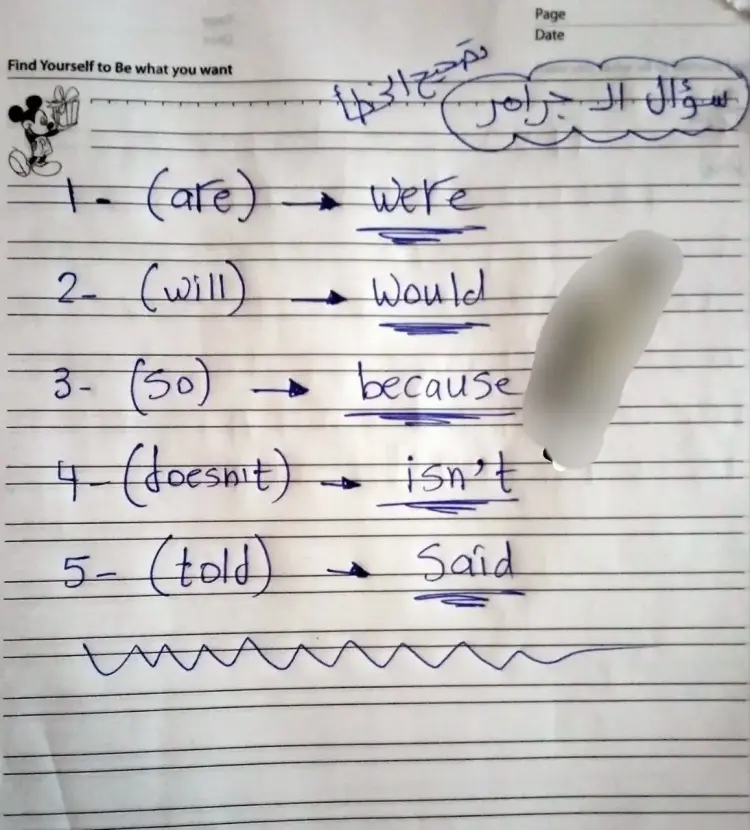 Page
Date
Find Yourself to Be what you want
سؤال الـ جرامر
تصحيح الخطأ
1- (are) → were
2- (will) → would
3- (so) → because
4- (doesn't) → isn't
5- (told) → Said